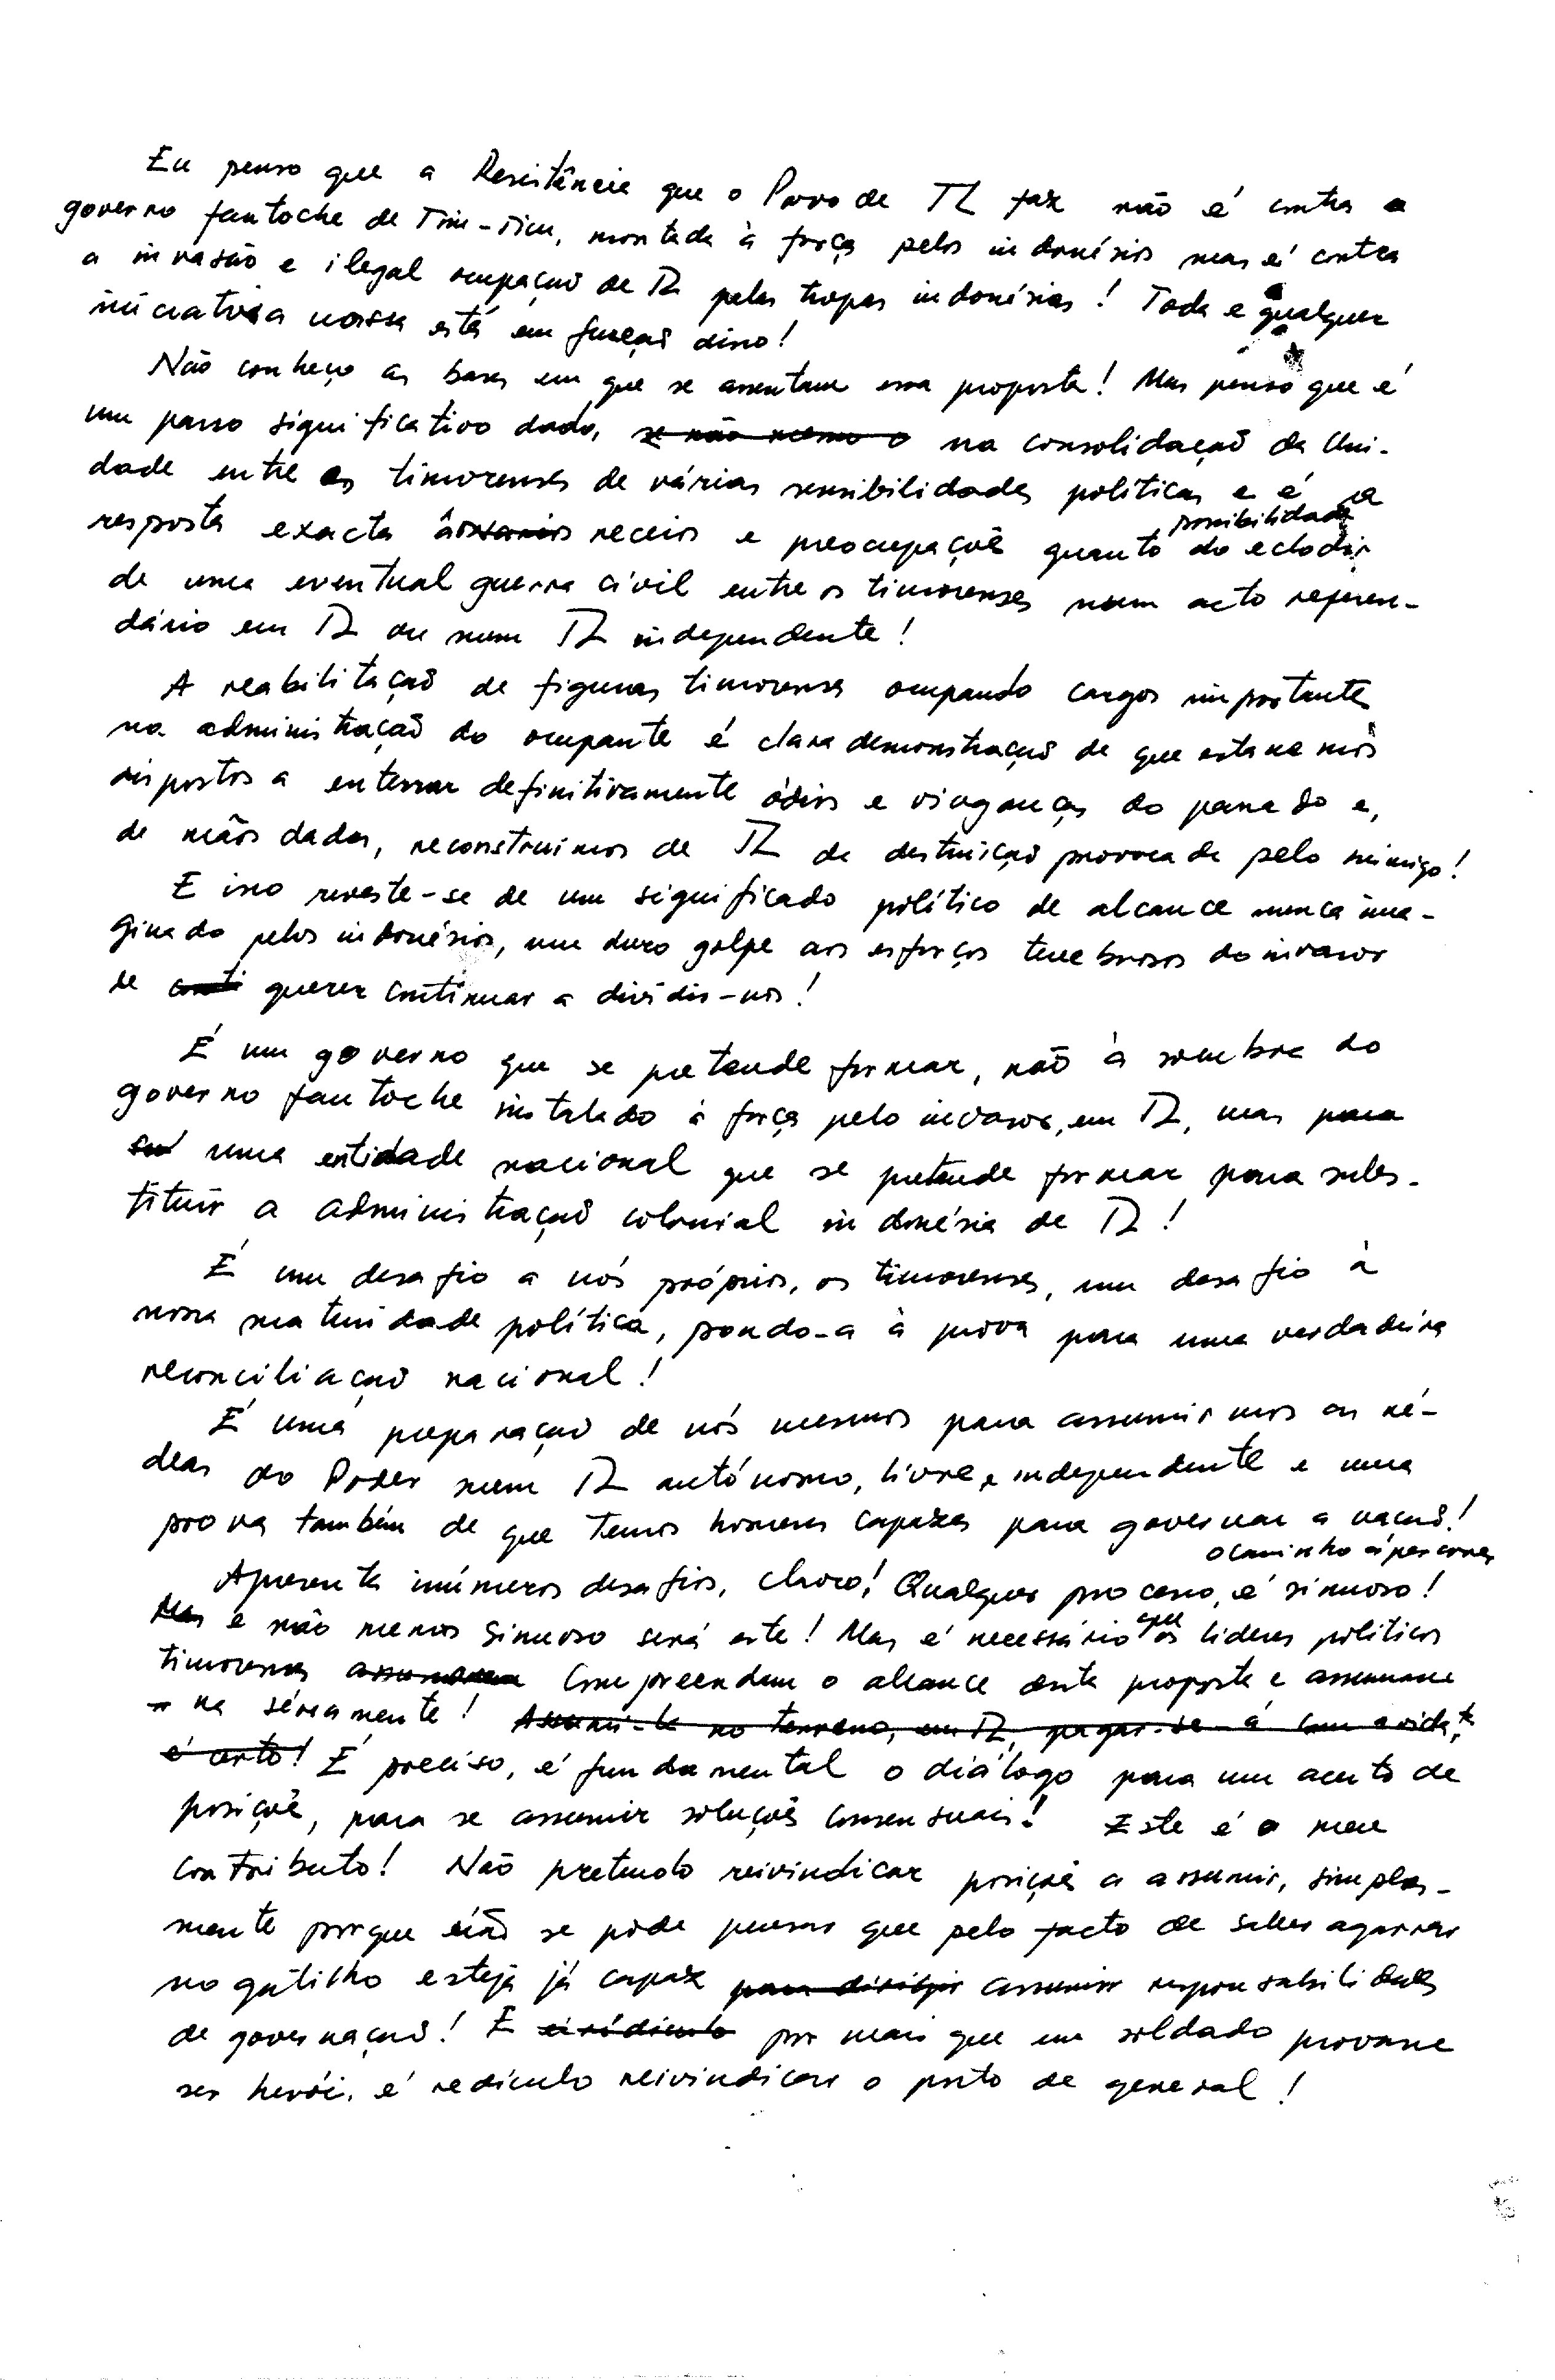 Eu penso que a Resistência que o Povo de TL faz não é contra o
governo fantoche de Tim-Tim, montado à força pelos indonésios mas é contra
a invasão e ilegal ocupação de TL pelas tropas indonésias! Toda e qualquer
iniciativa nossa está em função disso!
Não conheço as bases em que se assentam essa proposta! Mas penso que é
um passo significativo dado, se não mesmo o na consolidação da Uni-
dade entre os timorenses de várias sensibilidades políticas e é a
possibilidade
resposta exacta aos receios e preocupações quanto do eclodir
de uma eventual guerra civil entre os timorenses num acto referen-
dário em TL ou num TL independente!
A reabilitação de figuras timorenses ocupando cargos importantes
na administração do ocupante é clara demonstração de que estamos nós
dispostos a enterrar definitivamente ódios e vinganças do passado e,
de mãos dadas, reconstruirmos de TL da destruição provocada pelo inimigo!
E isso reveste-se de um significado político de alcance nunca ima-
ginado pelos indonésios, um duro golpe aos esforços tenebrosos do invasor
de conti querer continuar a dividir-nos!
É um governo que se pretende formar, não à sombra do
governo fantoche instalado à força pelo invasor, em TL, mas para
uma entidade nacional que se pretende formar para subs-
tituir a administração colonial indonésia de TL!
É um desafio a nós próprios, os timorenses, um desafio à
nossa maturidade política, pondo-a à prova para uma verdadeira
reconciliação nacional!
É uma preparação de nós mesmos para assumirmos as ré-
deas do Poder num TL autónomo, livre e independente e uma
prova também de que temos homens capazes para governar a nação!
o caminho a percorrer
Apresenta inúmeros desafios, claro! Qualquer processo, é sinuoso!
Mas e não menos sinuoso será este! Mas é necessário que os líderes políticos
timorenses assumam compreendam o alcance desta proposta e assumam
-na sèriamente! Assumi-la no terreno, em TL, pagar-se-á com a vida,
é certo! É preciso, é fundamental o diálogo para um acerto de
posições, para se assumir soluções consensuais! Este é o meu
contributo! Não pretendo reivindicar posições a assumir, simples-
mente porque não se pode pensar que pelo facto de saber agarrar
no gatilho esteja já capaz para dirigir assumir responsabilidades
de governação! E é rídiculo por mais que um soldado provasse
ser herói, é redículo reivindicar o posto de general!